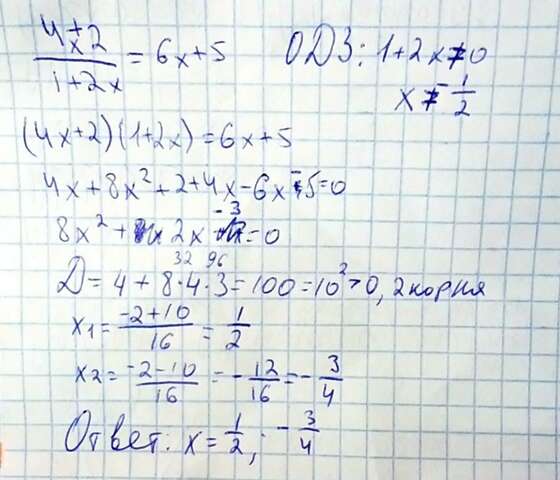 (4x+2)/(1+2x) = 6x+5   ОДЗ: 1+2x≠0
x≠-1/2
(4x+2)(1+2x)=6x+5
4x+8x²+2+4x-6x-5=0
8x²+2x-3=0
32 96
D=4+8·4·3=100=10²>0, 2 корня
x₁=(-2+10)/16=1/2
x₂=(-2-10)/16=-12/16=-3/4
Ответ: x=1/2; -3/4